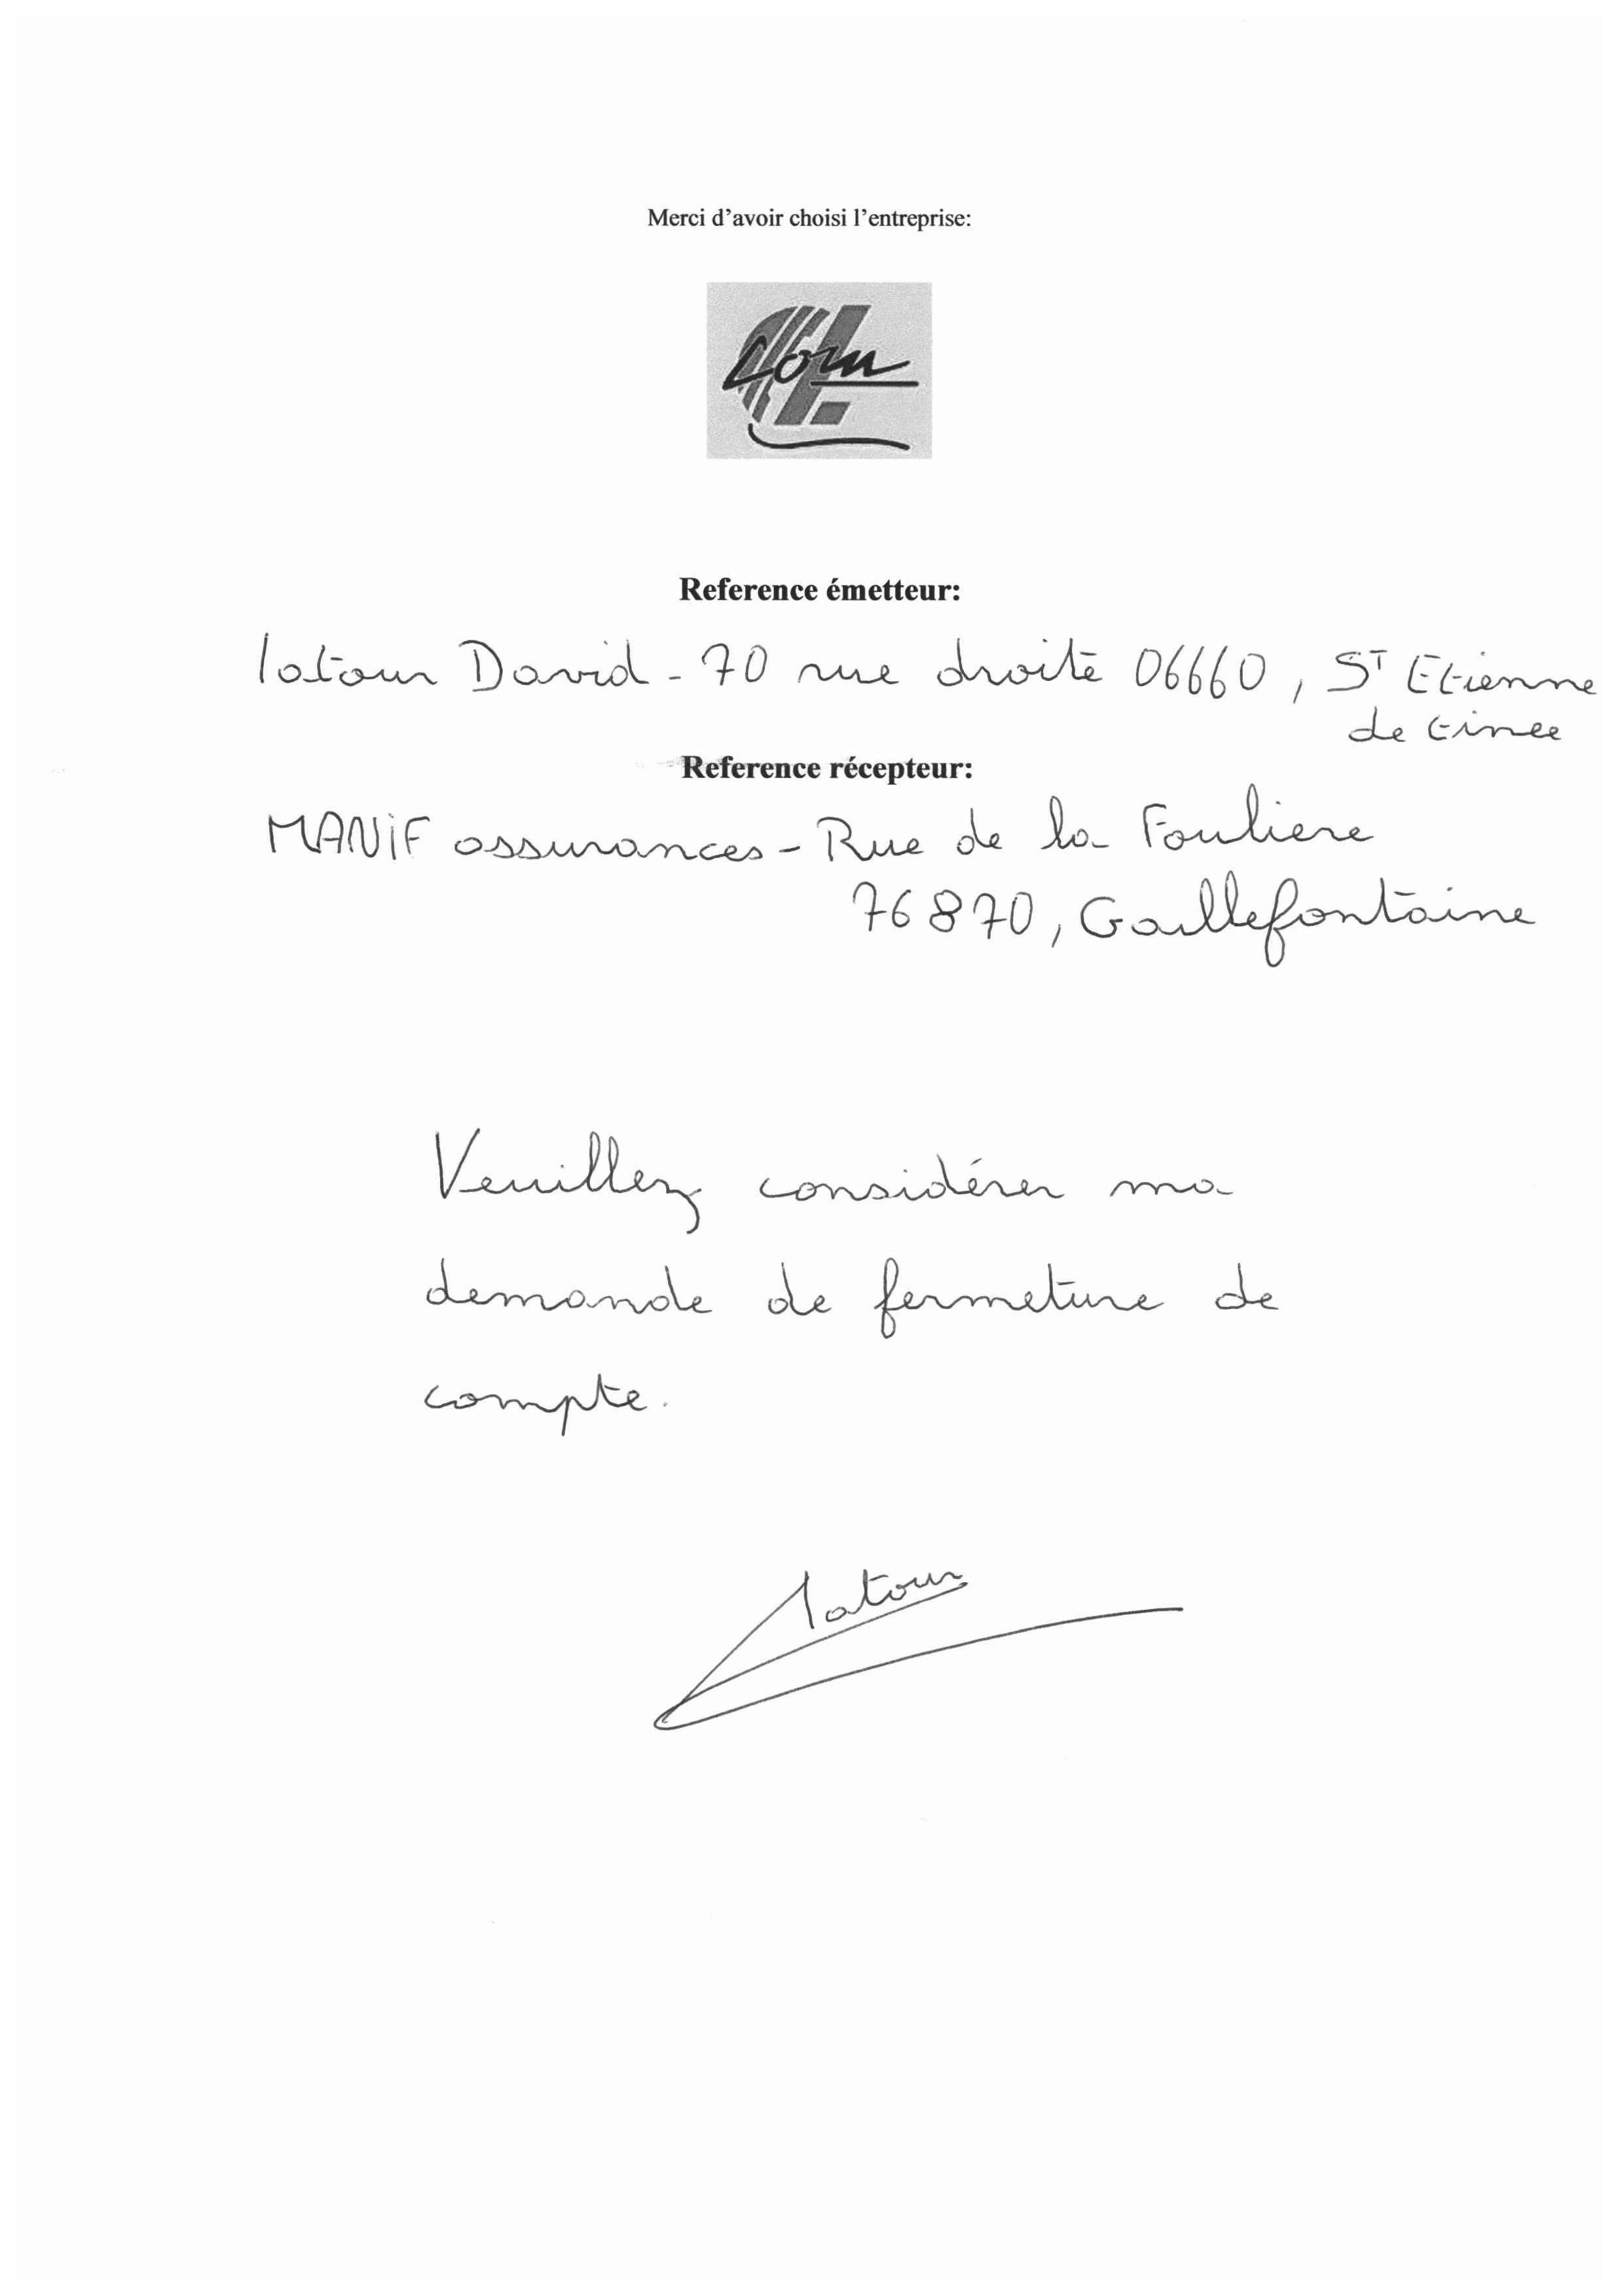 Merci d'avoir choisi l'entreprise:
Com
Reference émetteur:
latour David - 70 rue droite 06660, ST Etienne
de tinee
Reference récepteur:
MANIF assurances - Rue de la Fouliere
76870, Gaillefontaine
Veuillez considérer ma
demande de fermeture de
compte.
latour